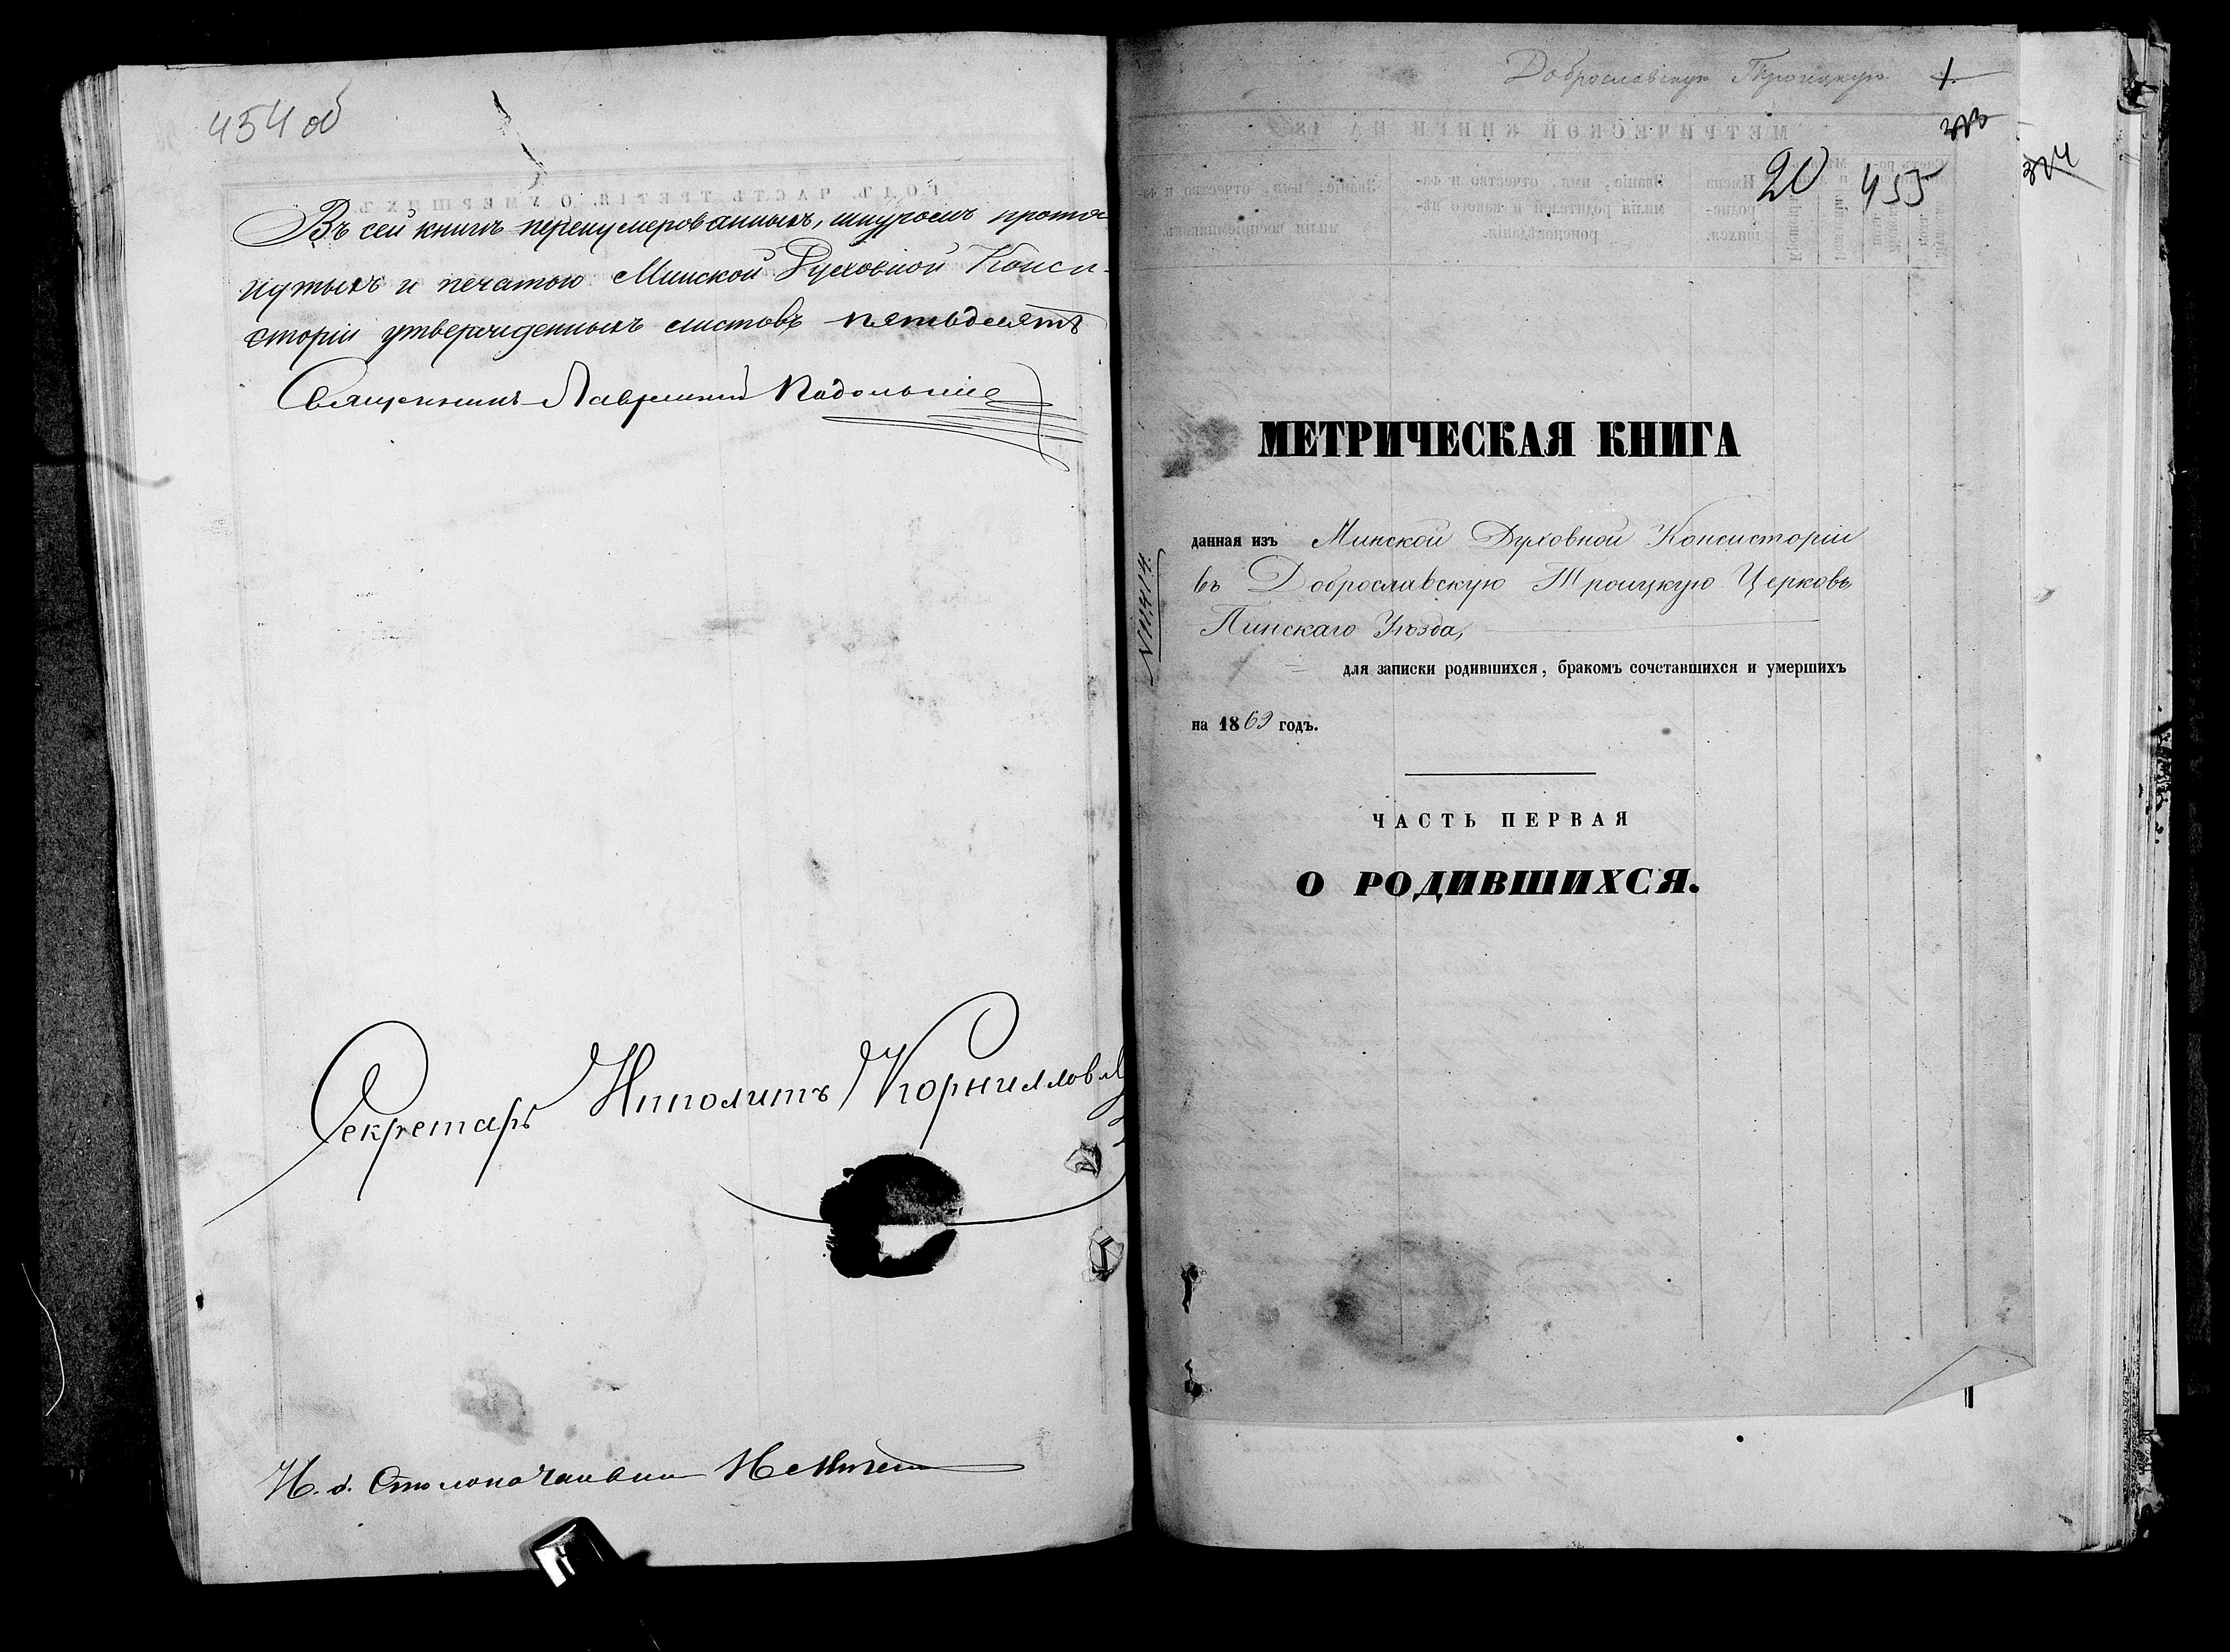 454 об
Въ сей книгѣ перенумерованныхъ, шнуромъ протя-
нутыхъ и печатью Минской Духовной Конси-
сторіи утвержденныхъ листовъ пятьдесятъ
Священникъ Лаврентій Подольскій
Секретарь Ипполитъ Корнилов
И. д. Столоначальника
Доброславскую Троицкую
1
373
374
20 455
МЕТРИЧЕСКАЯ КНИГА
данная изъ Минской Духовной Консисторіи
въ Доброславскую Троицкую Церковь
Пинскаго Уѣзда,
для записки родившихся, бракомъ сочетавшихся и умершихъ
на 1869 годъ.
ЧАСТЬ ПЕРВАЯ
О РОДИВШИХСЯ.